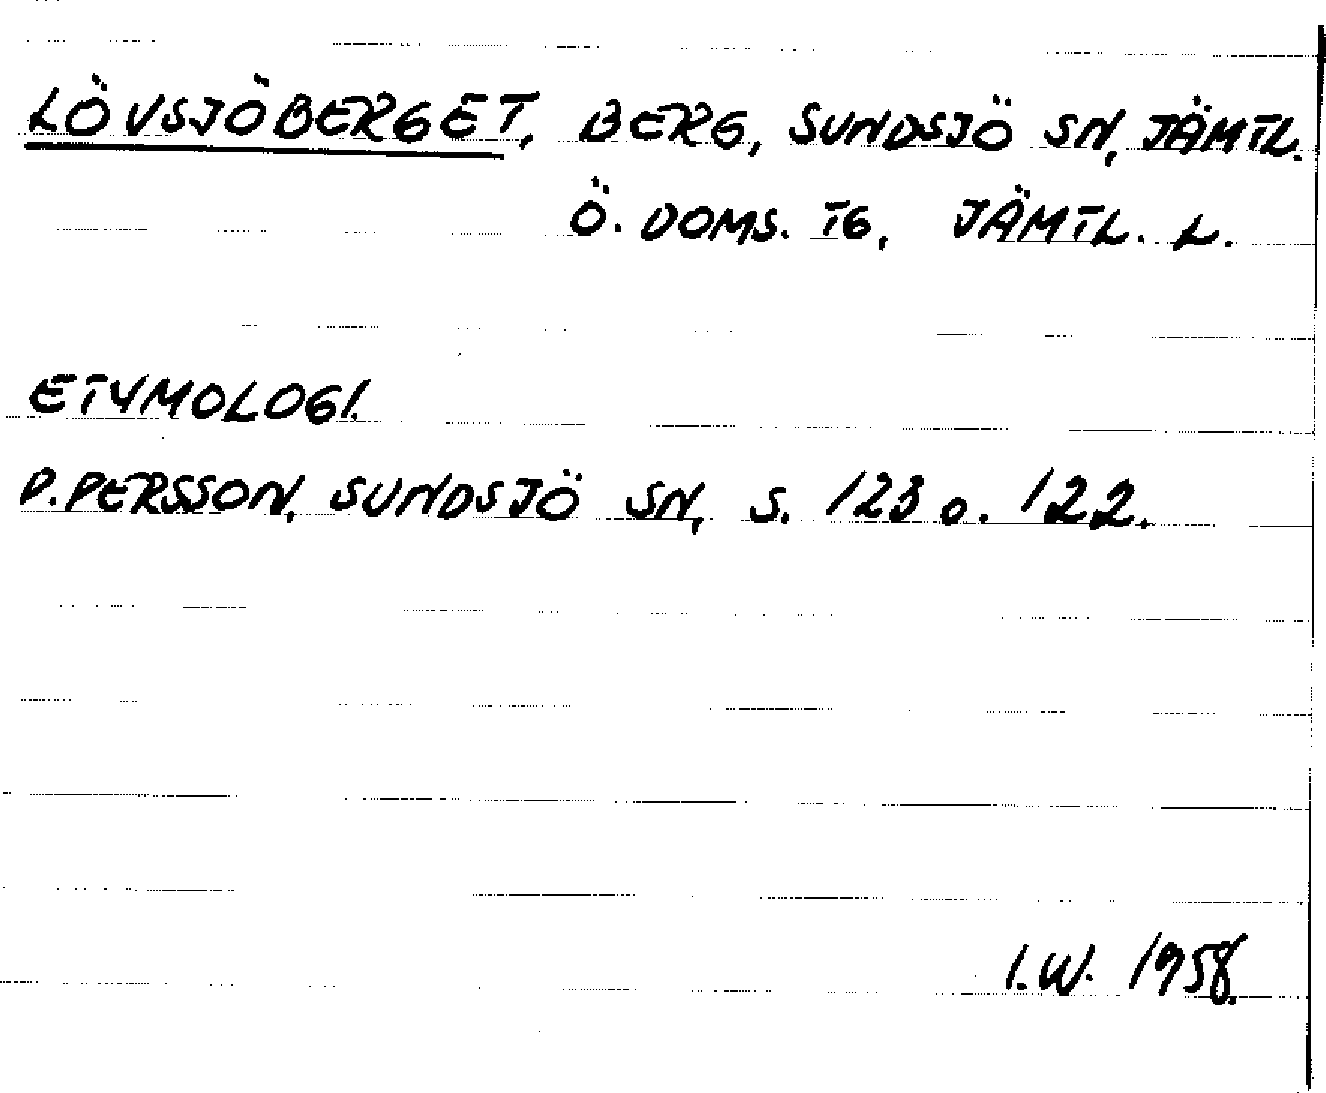 LÖVSJÖBERGET, BERG, SUNDSJÖ SN, JÄMTL.
Ö. DOMS. TG, JÄMTL. L.
ETYMOLOGI.
P. PERSSON, SUNDSJÖ SN, S. 123 o. 122.
I.W. 1958.